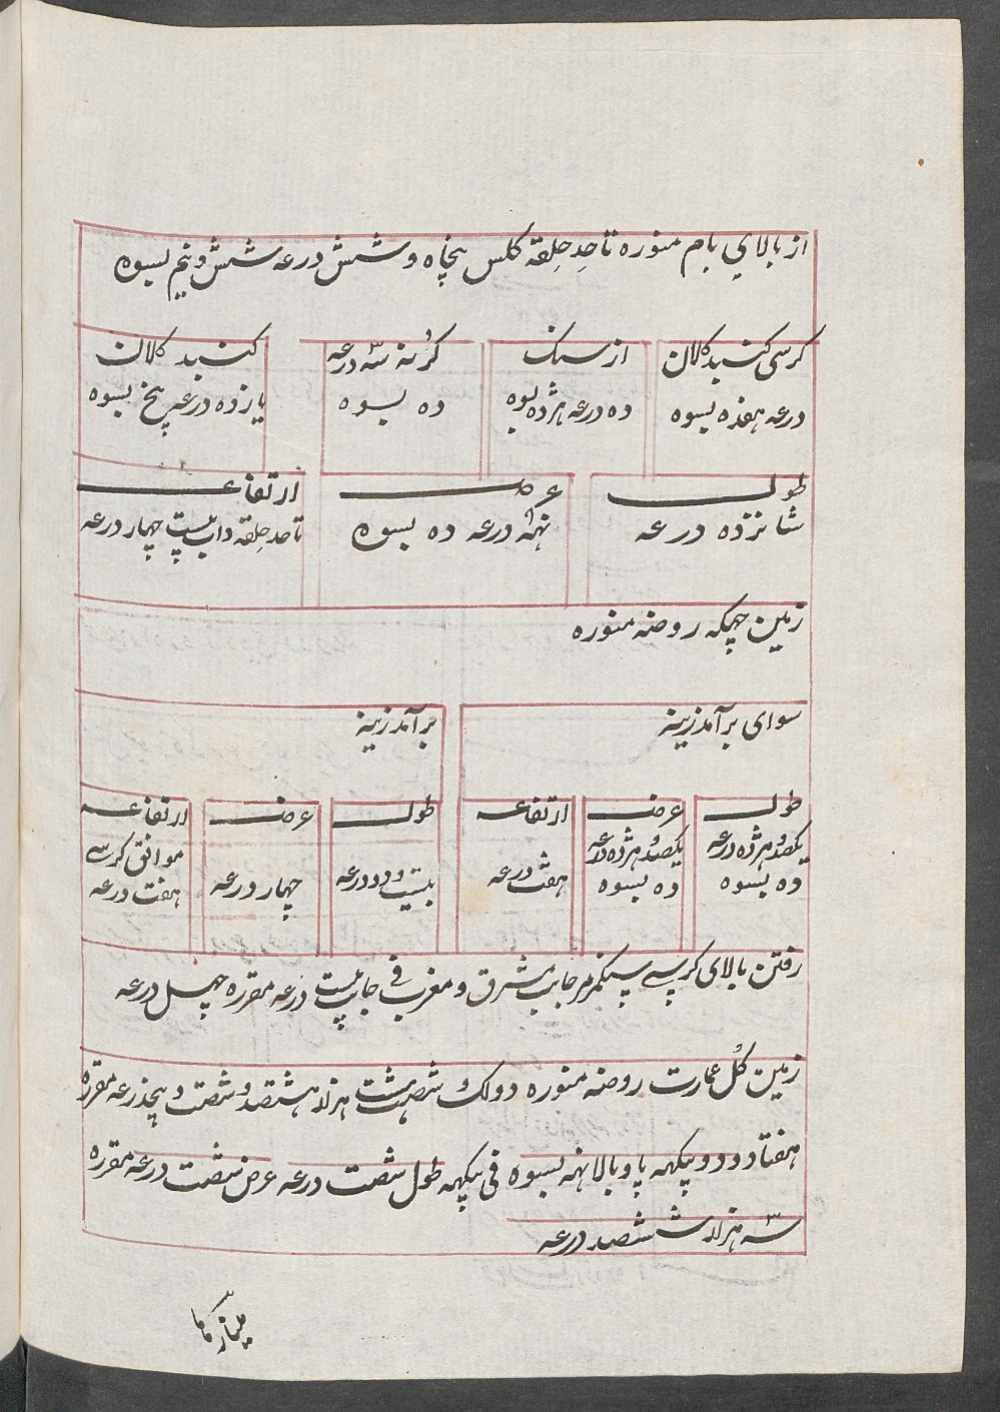 از بالای بام منوره تا حد حلقه کلس پنجاه و شش درعه شش و نیم بسوه
کرسی کنبد کلان
درعه هفده بسوه
از سنک
ده درعه هژده بسوه
کرسه سه درعه
ده بسوه
کنبد کلان
یازده درعه پنج بسوه
طول
شانزده درعه
عرض
نهه درعه ده بسوه
ارتفاع
تا حد حلقه داب بیست چهار درعه
زمین چبکه روضه منوره
سوای برآمد زینه
برآمد زینه
طول
یکصد و هژده درعه
ده بسوه
عرض
یکصد و هژده درعه
ده بسوه
ارتفاع
هفت درعه
طول
بیست و دو درعه
عرض
چهار درعه
ارتفاع
موافق کرسی
هفت درعه
رفتن بالای کرسی سنکمرمر جانب مشرق و مغرب فی جانب بیست درعه مقرره چهل درعه
زمین کل عمارت روضه منوره دو لک و شصت هشت هزار هشتصد و شصت و پنجدرعه مقرره
هفتاد و دو بیکهه پاو بالا نهه بسوه فی بیکهه طول شصت درعه عرض شصت درعه مقرره
سه هزار ششصد درعه